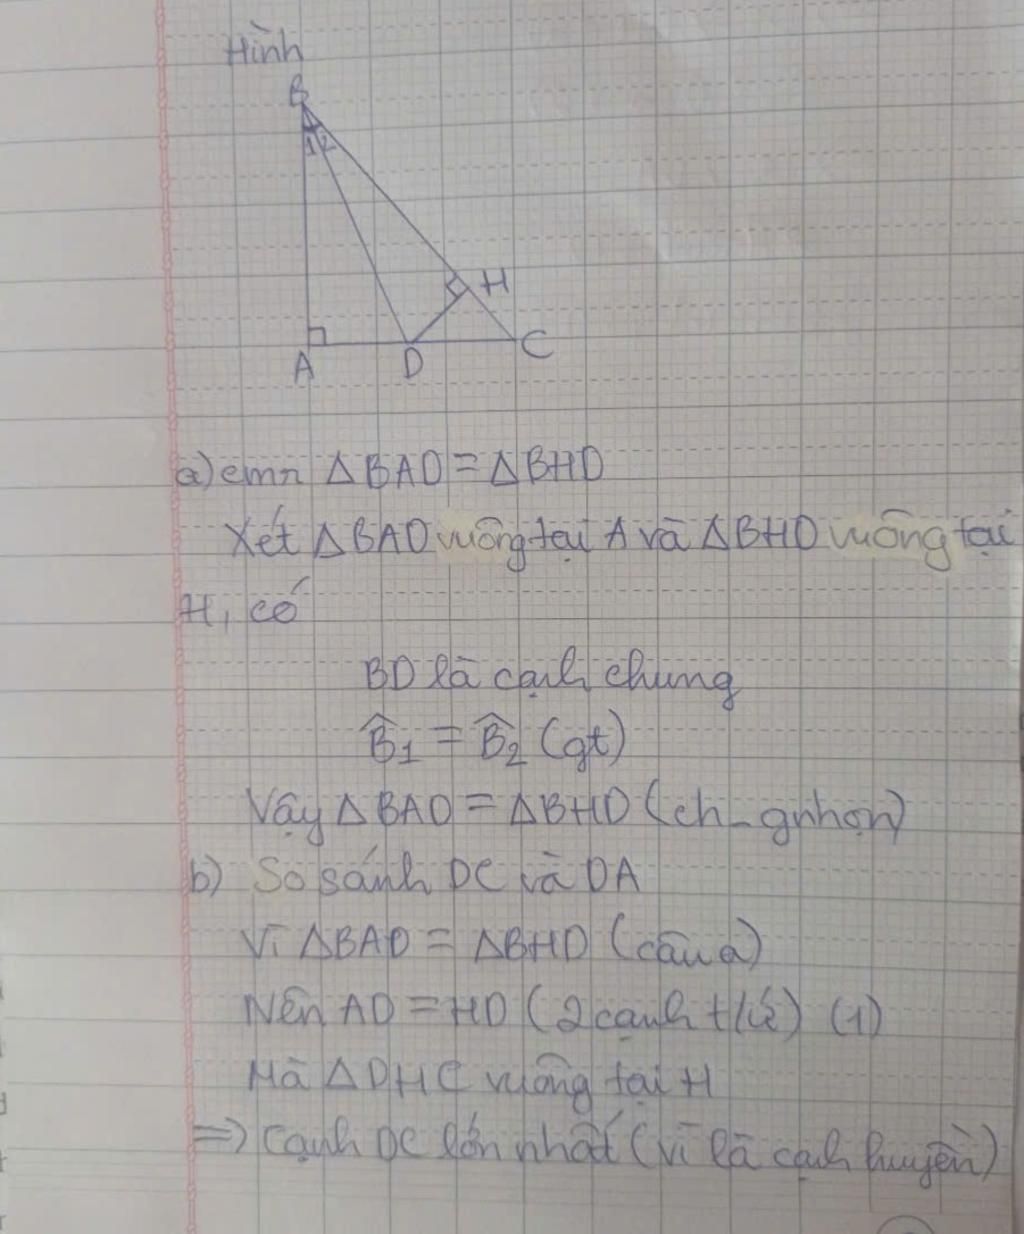 Hình
B
1 2
H
A D C
a) cmr ΔBAD = ΔBHD
Xét ΔBAD vuông tại A và ΔBHD vuông tại
H, có
BD là cạnh chung
B̂₁ = B̂₂ (gt)
Vậy ΔBAD = ΔBHD (ch_gnhọn)
b) So sánh DC và DA
Vì ΔBAD = ΔBHD (câu a)
Nên AD = HD (2 cạnh t/ứ) (1)
Mà ΔDHC vuông tại H
=> Cạnh DC lớn nhất (vì là cạnh huyền)